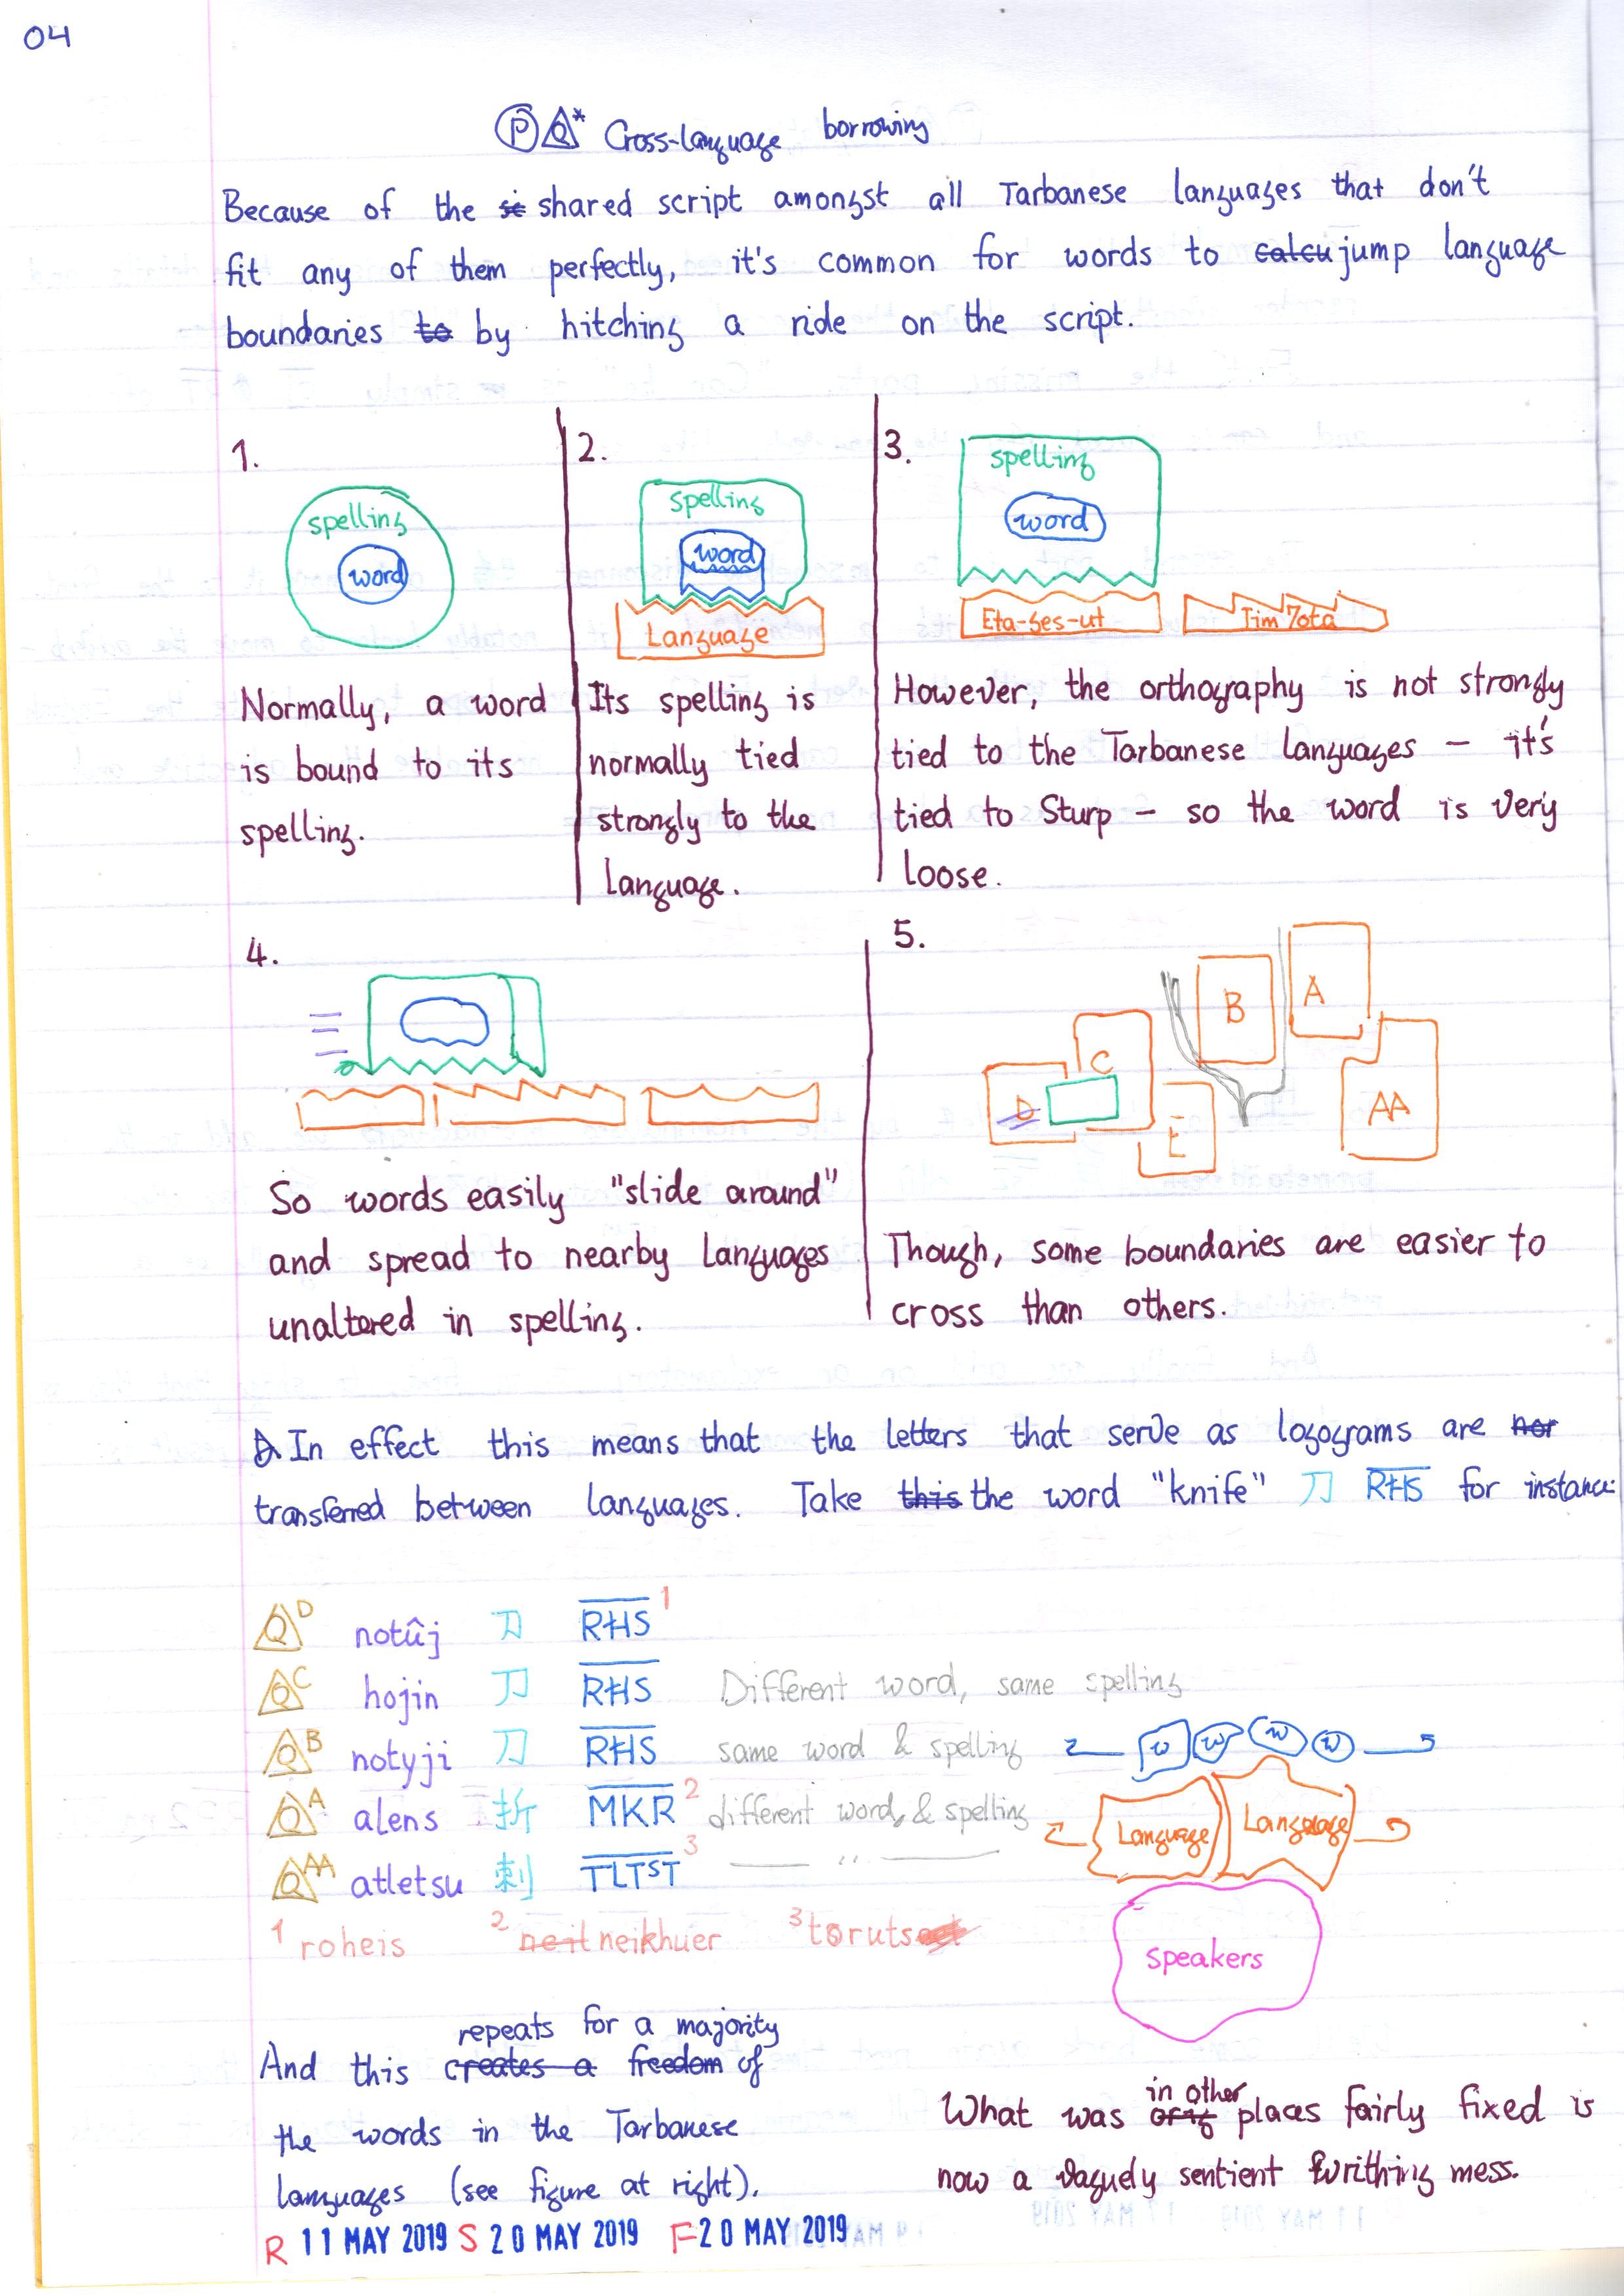 04
Ⓟ Q* Cross-language borrowing
Because of the se shared script amongst all Tarbanese languages that don't
fit any of them perfectly, it's common for words to calcu jump language
boundaries to by hitching a ride on the script.
1.
spelling
word
Normally, a word
is bound to its
spelling.
2.
spelling
word
Language
Its spelling is
normally tied
strongly to the
language.
3.
spelling
word
Eta-ges-ut
Tim7ota
However, the orthography is not strongly
tied to the Tarbanese languages – it's
tied to Sturp – so the word is very
loose.
4.
So words easily "slide around"
and spread to nearby languages
unaltered in spelling.
5.
A
B
C
D
E
AA
Though, some boundaries are easier to
cross than others.
In effect this means that the letters that serve as logograms are nor
transferred between languages. Take this the word "knife" 刀 RHS for instance:
Q D notûj 刀 RHS 1
Q C hojin 刀 RHS Different word, same spelling
Q B notyji 刀 RHS same word & spelling
Q A alens 折 MKR 2 different word & spelling
Q AA atletsu 刺 TLTST 3 —— " ——
1 roheis 2 neit neikhuer 3 toruts
w w w w
Language Language
speakers
repeats for a majority
And this creates a freedom of
the words in the Tarbanese
languages (see figure at right).
in other
What was orig places fairly fixed is
now a vaguely sentient writhing mess.
R 11 MAY 2019 S 20 MAY 2019 F 20 MAY 2019